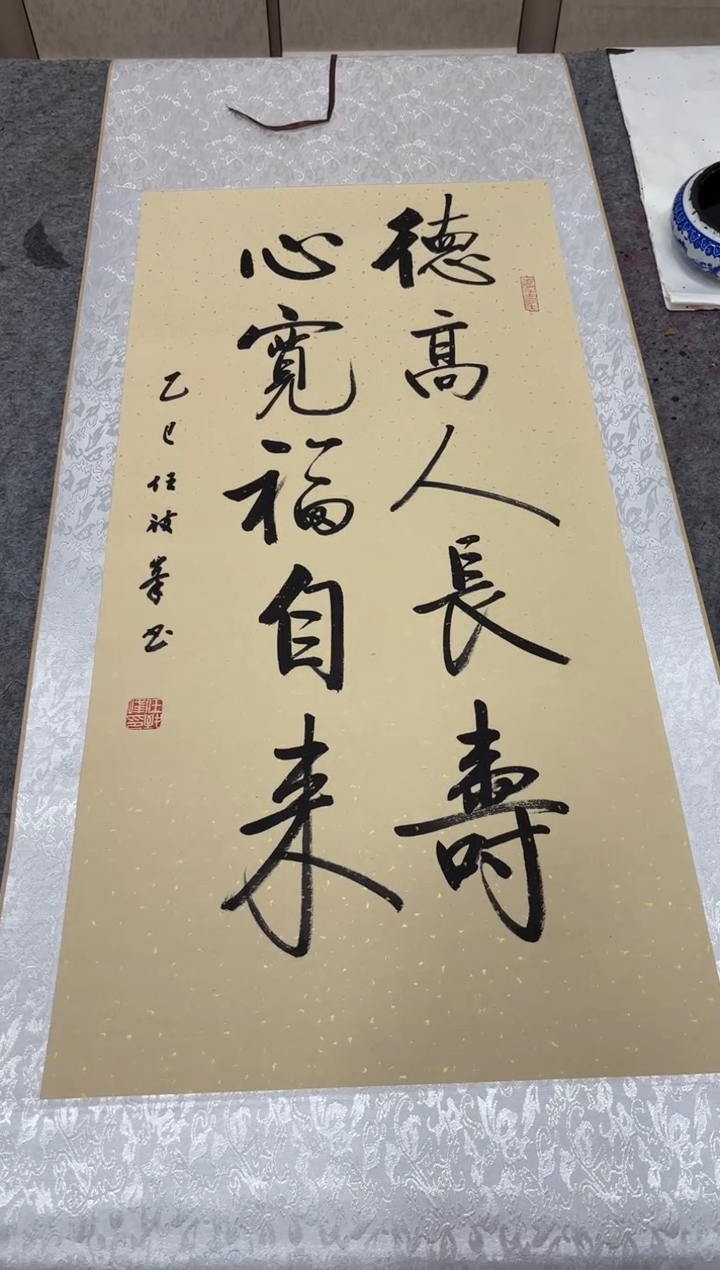 德高人長壽
心寬福自来
乙巳任祓峯书